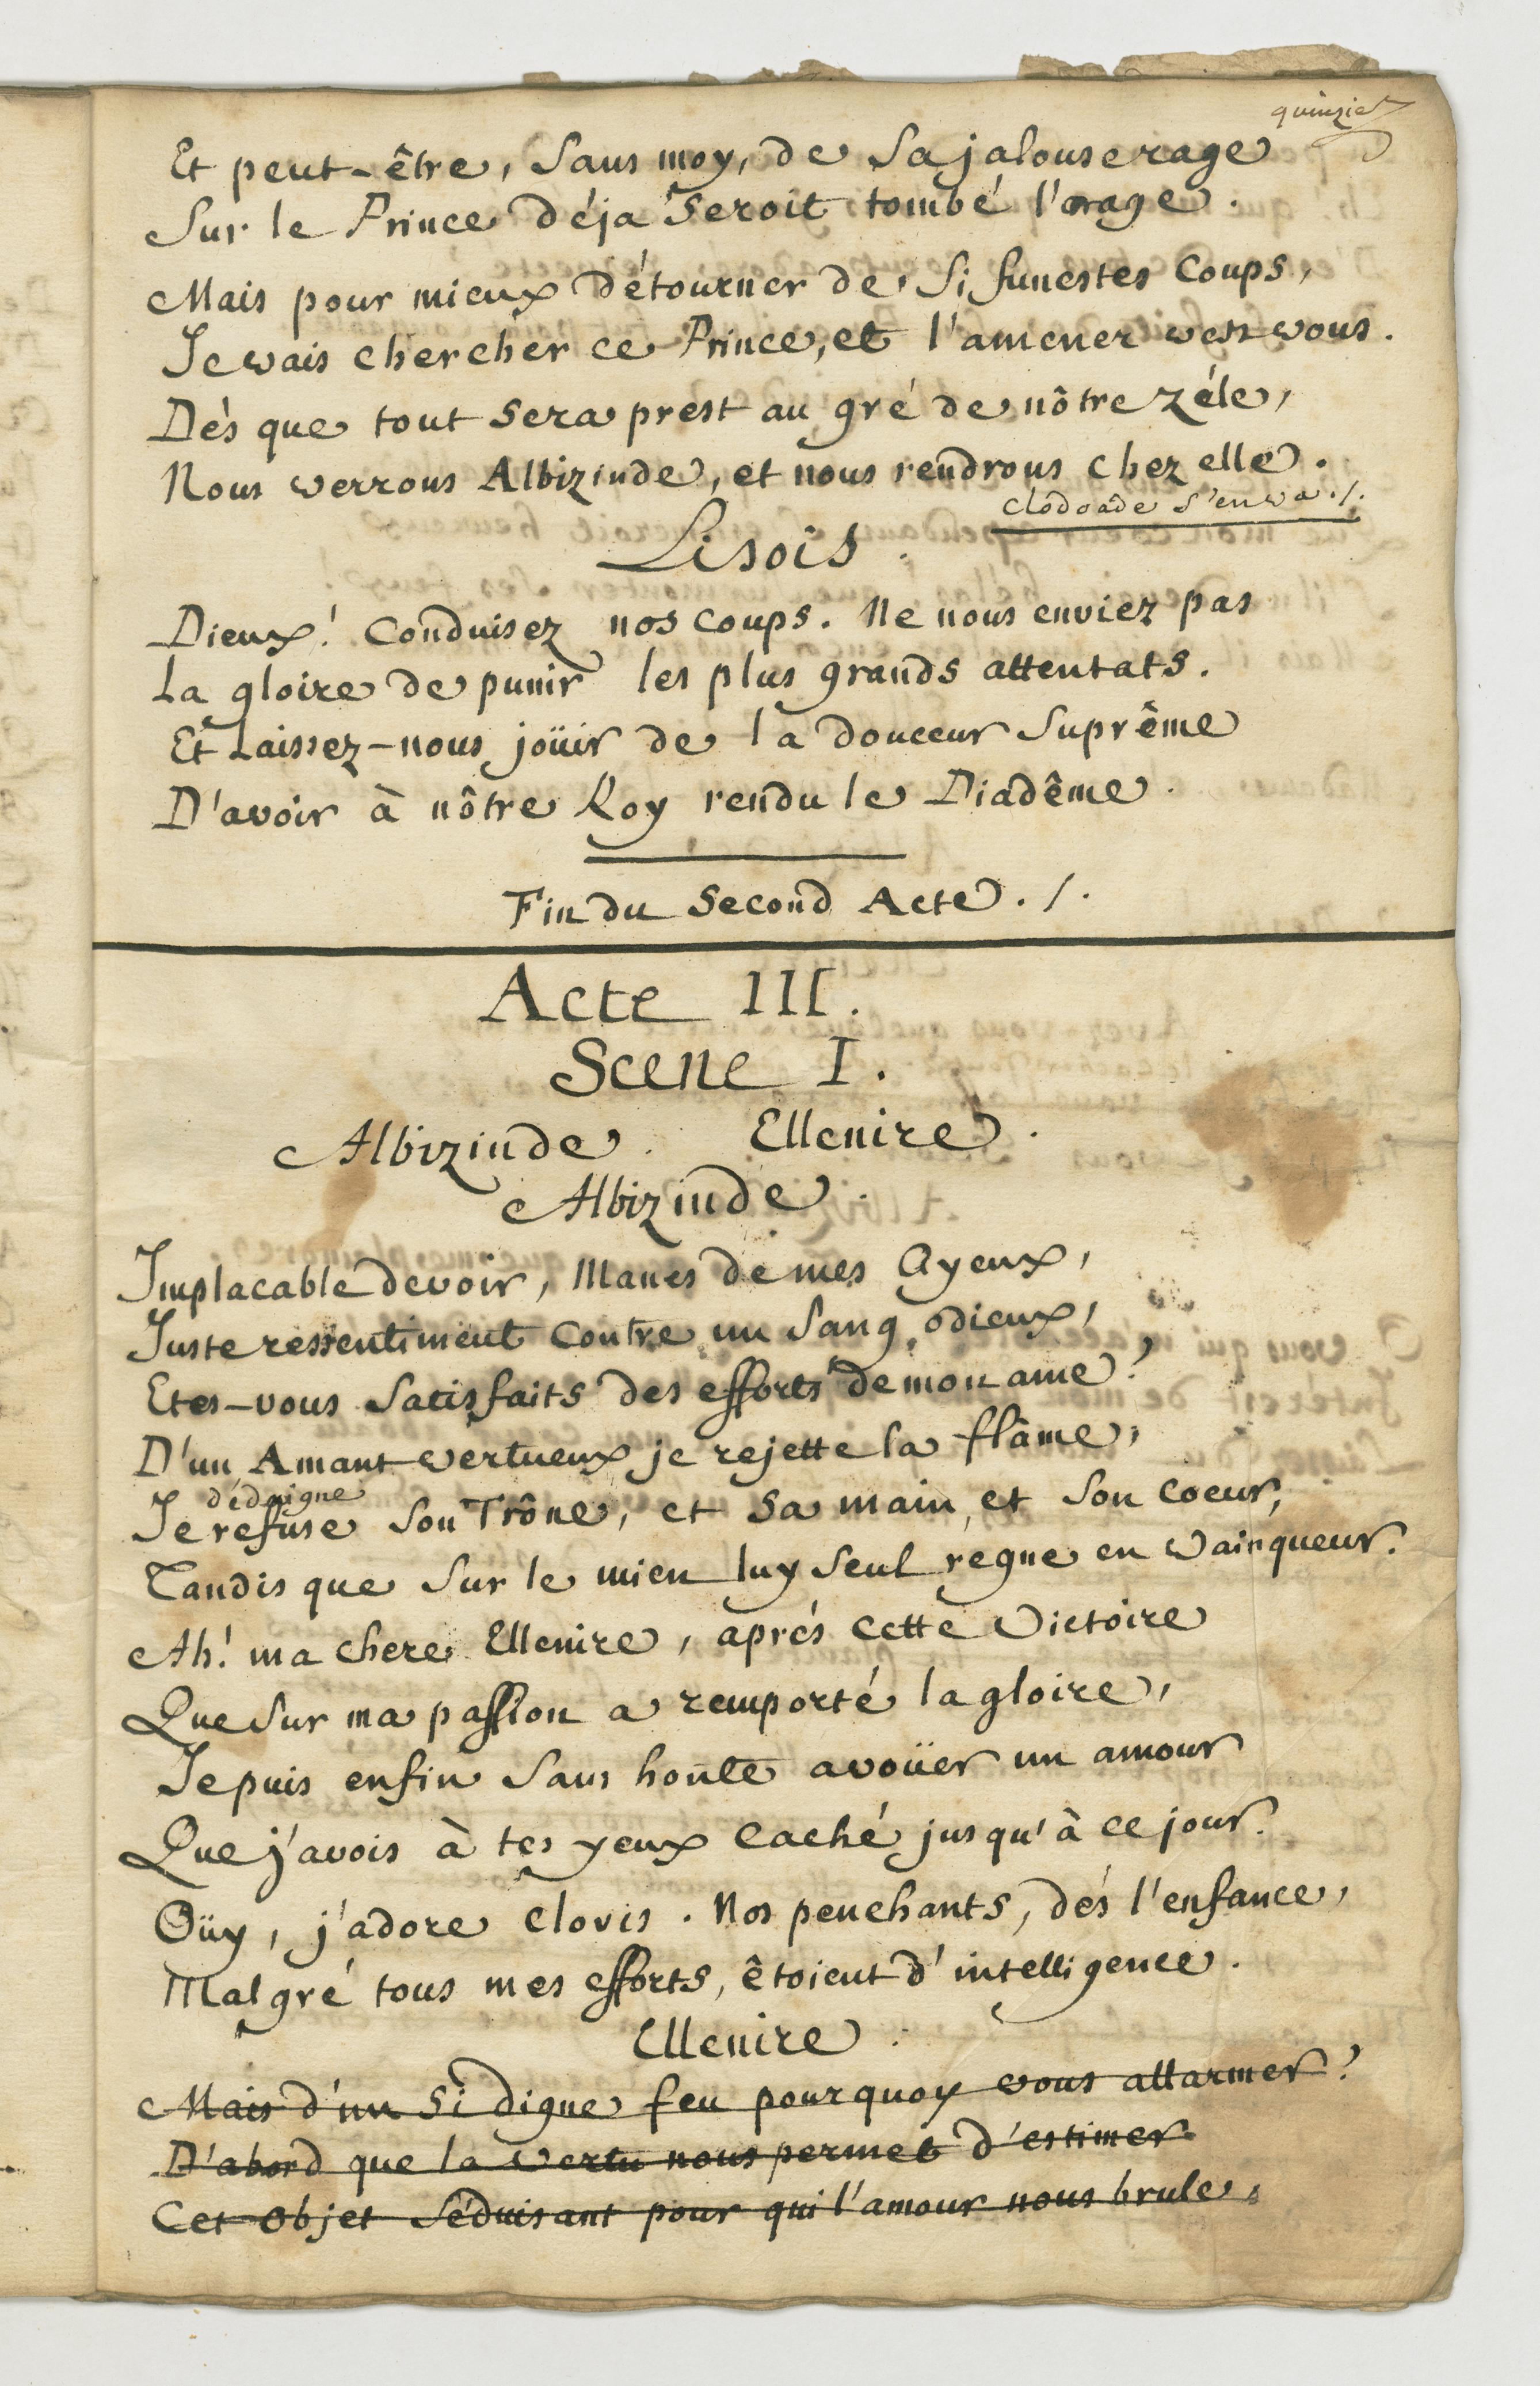 quinzie
Et peut-être, Sans moy, de Sa jalouse rage
Sur le Prince déja seroit tombé l'orage.
Mais pour mieux détourner de Si funestes Coups,
Je vais chercher ce Prince, et l'amener vers vous.
Dès que tout sera prest au gré de nôtre zéle,
Nous verrons Albizinde, et nous rendrons chez elle.
Clodoade S'en va ./.
Lisois.
Dieux! Conduisez nos Coups. Ne nous enviez pas
La gloire de punir les plus grands attentats.
Et Laissez-nous joüir de la douceur Suprême
D'avoir à nôtre Roy rendu le Diadême.
Fin du Second Acte ./.
Acte III.
Scene I.
Albizinde. Ellenire.
Albizinde.
Implacable devoir, Manes de mes Ayeux,
Juste ressentiment Contre un Sang odieux,
Etes-vous Satisfaits des efforts de mon ame?
D'un Amant vertueux je rejette la flâme,
dédaigne
Je refuse Son Trône, et sa main, et Son Coeur,
Tandis que Sur le mien luy Seul régne en Vainqueur.
Ah! ma chere Ellenire, aprés Cette Victoire
Que Sur ma passion a remporté la gloire,
Je puis enfin Sans honte avoüer un amour
Que j'avois à tes yeux Caché jusqu'à ce jour.
Oüy, j'adore Clovis. Nos penchants, dés l'enfance,
Malgré tous mes efforts, êtoient d'intelligence.
Ellenire.
Mais d'un si digne feu pourquoy vous allarmer?
D'abord que la vertu nous permet d'estimer
Cet Objet Séduisant pour qui l'amour nous brule,